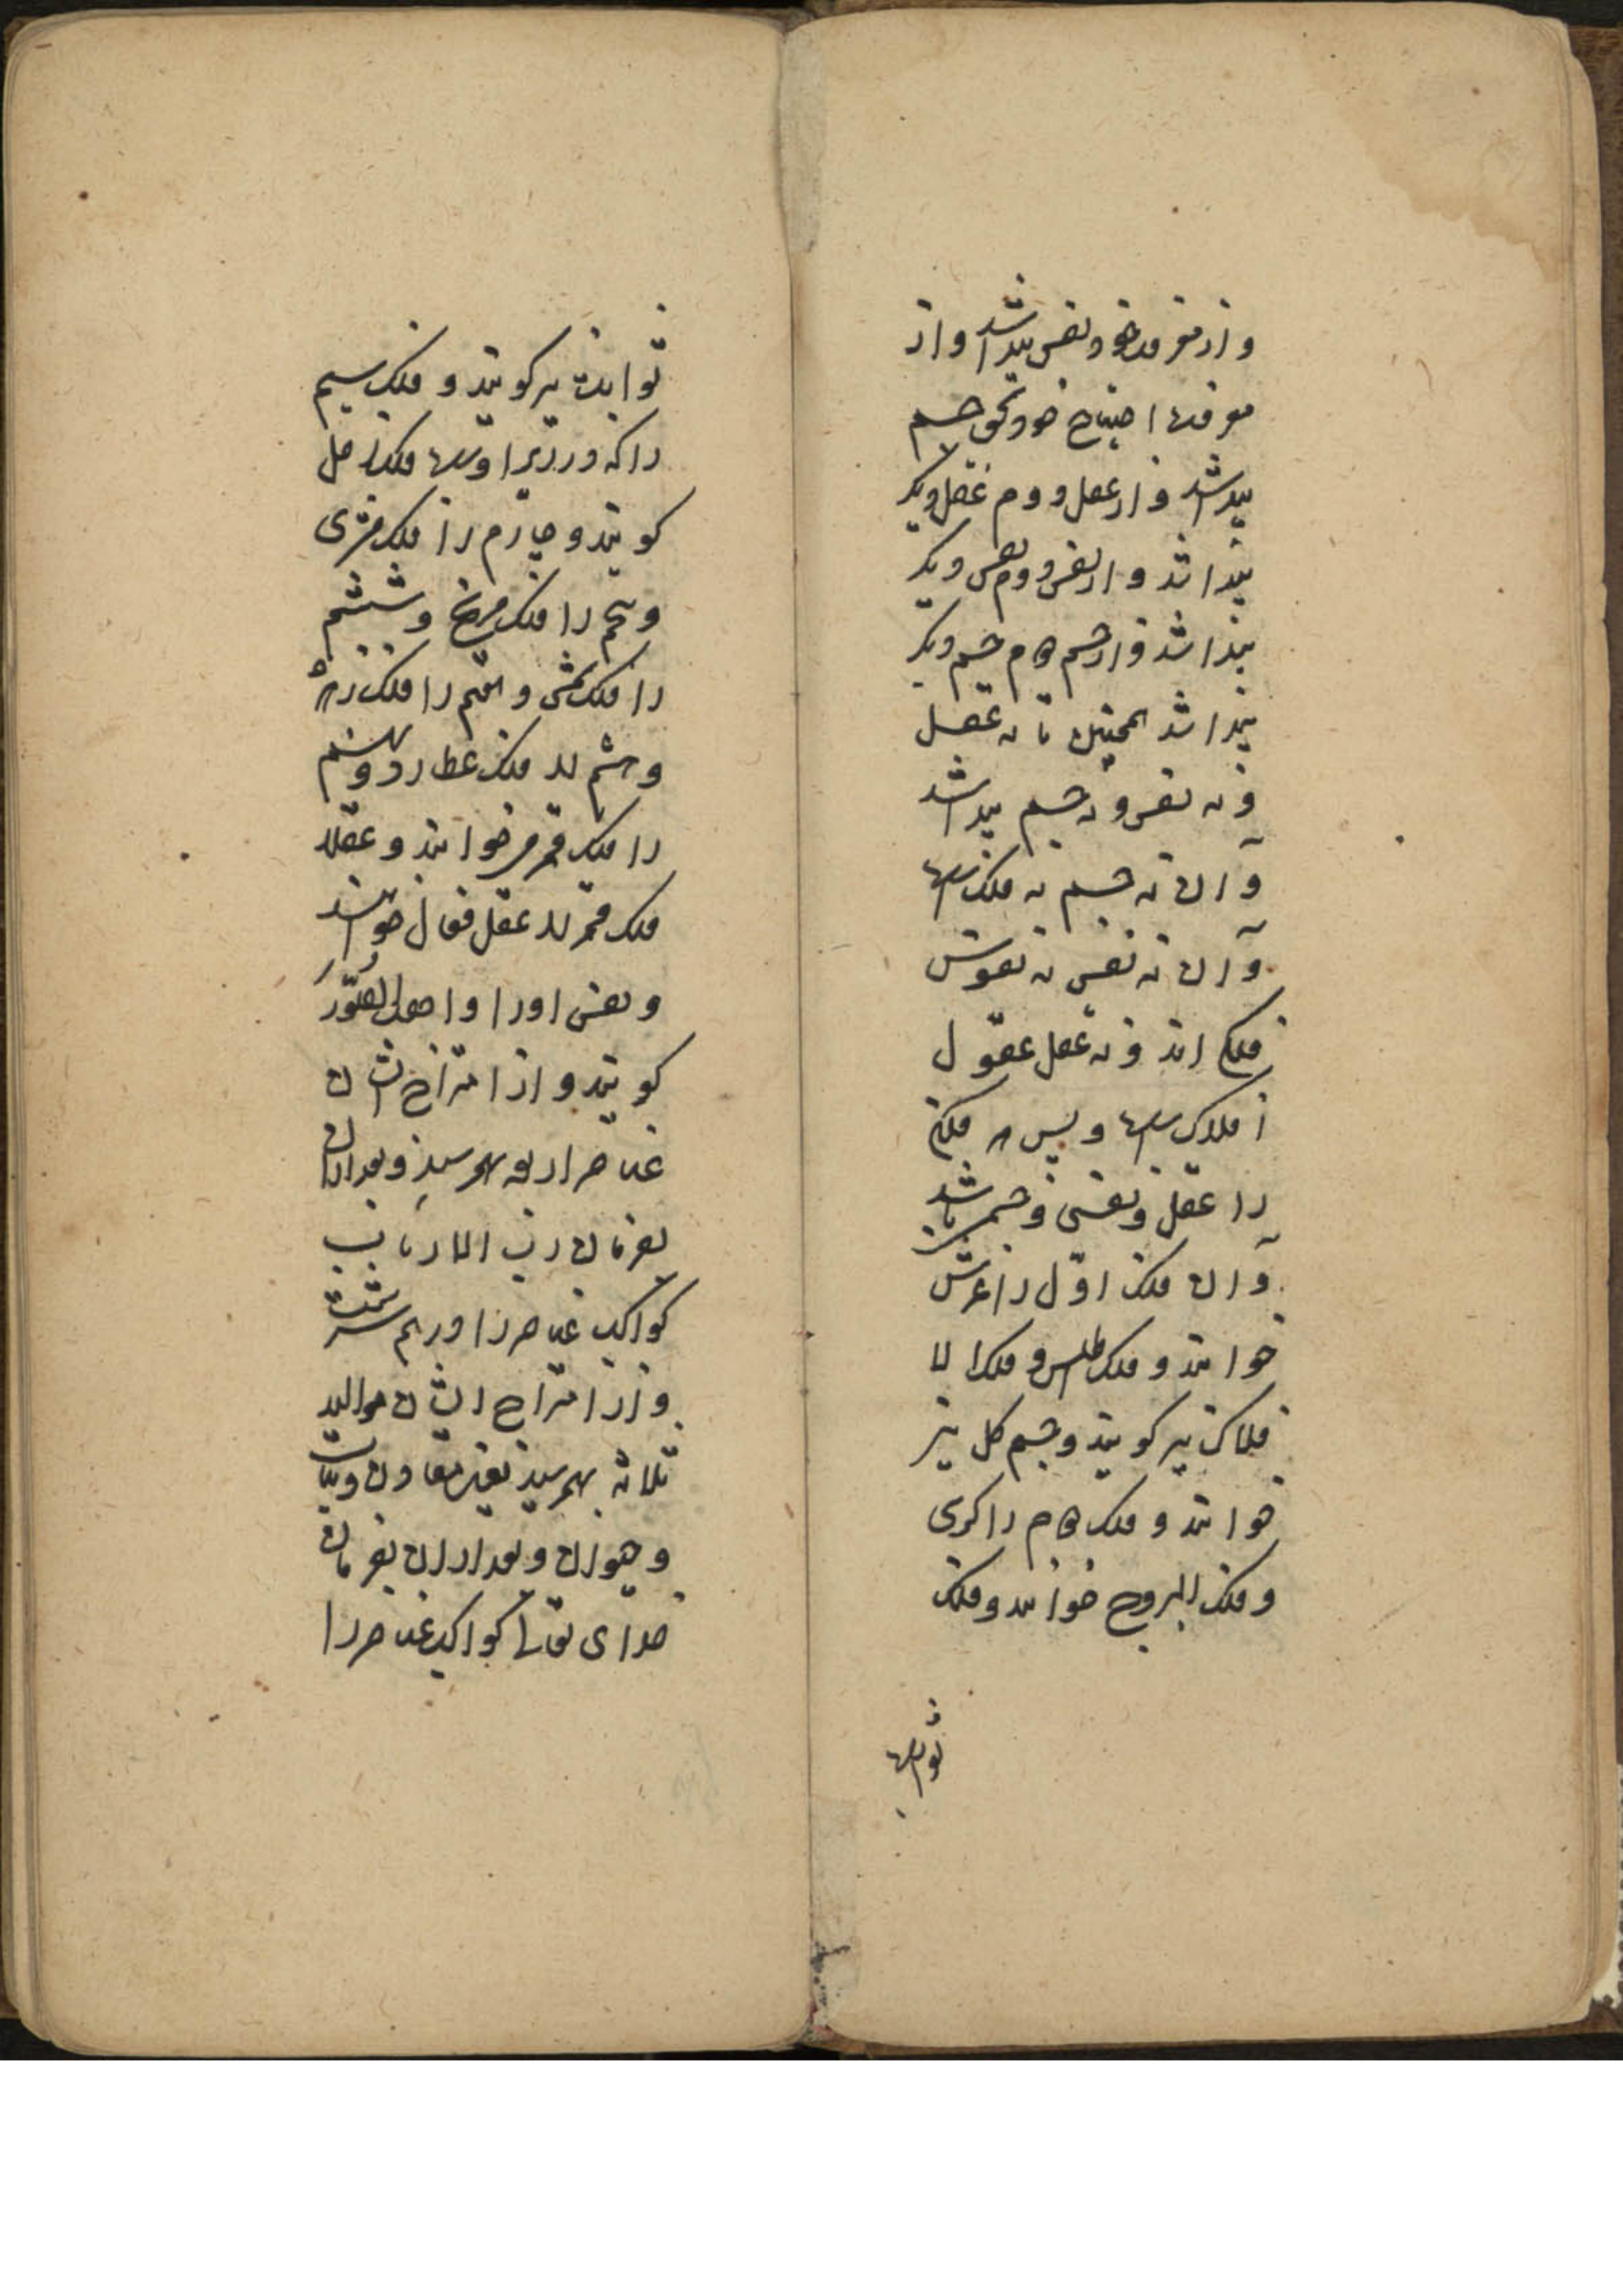 و از معرفت خود نفس پیدا شد و از
معرفت احتیاج خود بحق جسم
پیدا شد و از عقل دوم عقل دیکر
پیدا شد و از نفس دوم نفس دیکر
پیدا شد و از جسم دوم جسم دیکر
پیدا شد همچنین تا نه عقل
و نه نفس و نه جسم پیدا شد
و آن نه جسم نه فلک است
و آن نه نفس نه نفوس
فلکی اند و نه عقل عقول
افلاک است و پس هر فلکی
را عقل و نفسی و جسمی باشد
و آن فلک اول را عرش
خوانند و فلک اطلس و فلک الا
فلاک نیز کویند و جسم کل نیز
خوانند و فلک دوم را کرسی
و فلک البروج خوانند و فلک
ثوابت
ثوابت نیز کویند و فلک سیم
را که در زیر اوست فلک زحل
کویند و چهارم را فلک مشتری
و پنجم را فلک مریخ و ششم
را فلک شمس و هفتم را فلک زهره
و هشتم را فلک عطارد و نهم
را فلک قمر میخوانند و عقل
فلک قمر را عقل فعال خوانند
و نفس او را واهب الصور
کویند و از امتزاج ایشان
عناصر اربعه بهم رسید و بعد از آن
بفرمان رب الارباب
کواکب عناصر را در هم سرشت
و از امتزاج ایشان موالید
ثلاثه بهم رسید یعنی معادن و نبات
و حیوان و بعد از آن بفرمان
خدای تعالی کواکب عناصر را